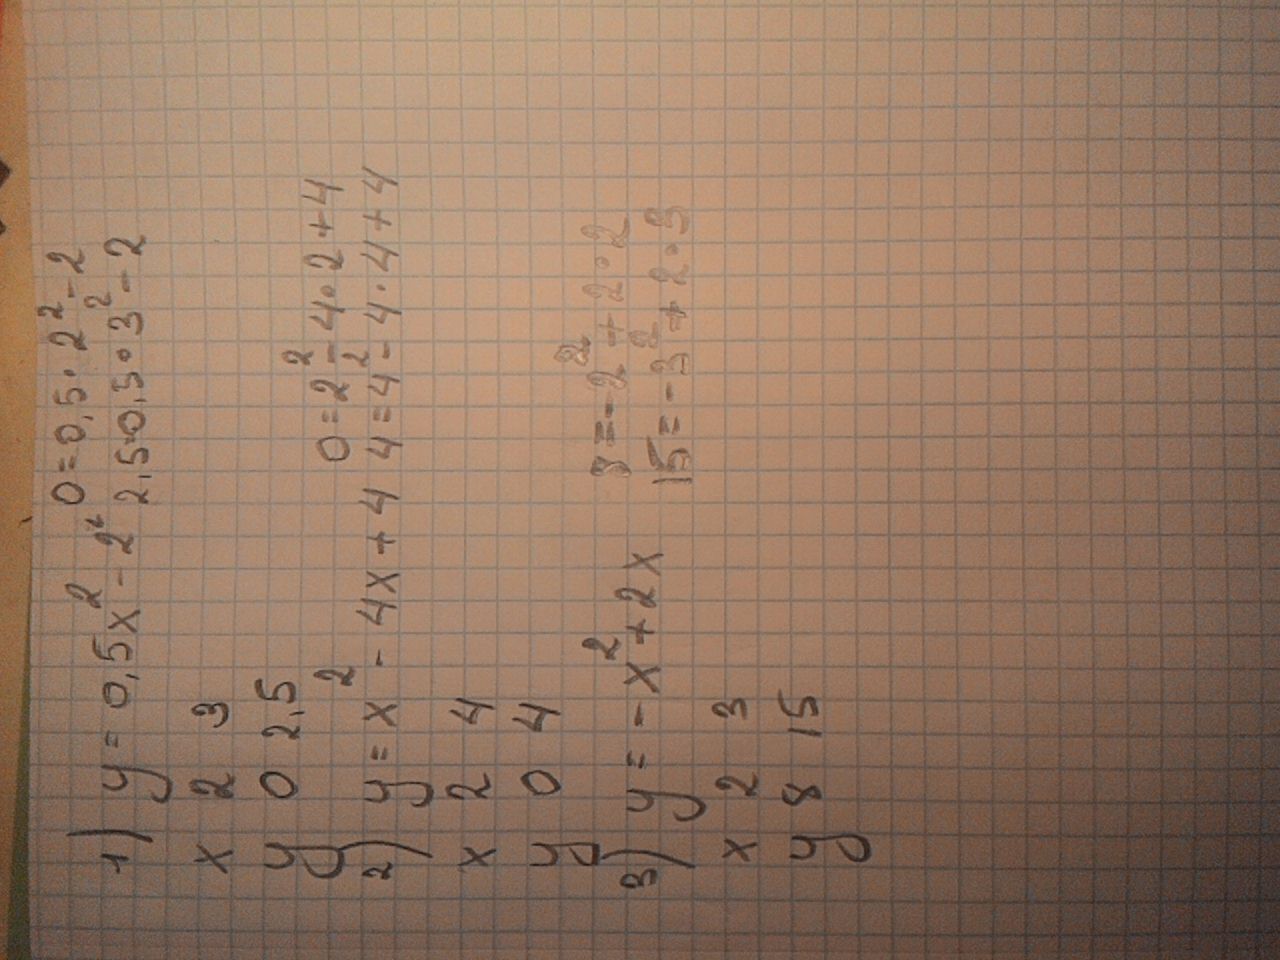 1) y = 0,5x² - 2² 0=0,5·2²-2
2,5=0,5·3²-2
x 2 3
y 0 2,5
0=2²-4·2+4
2) y=x² - 4x+4 4=4²-4·4+4
x 2 4
y 0 4
8=-2²+2·2
3) y=-x²+2x 15=-3²+2·3
x 2 3
y 8 15